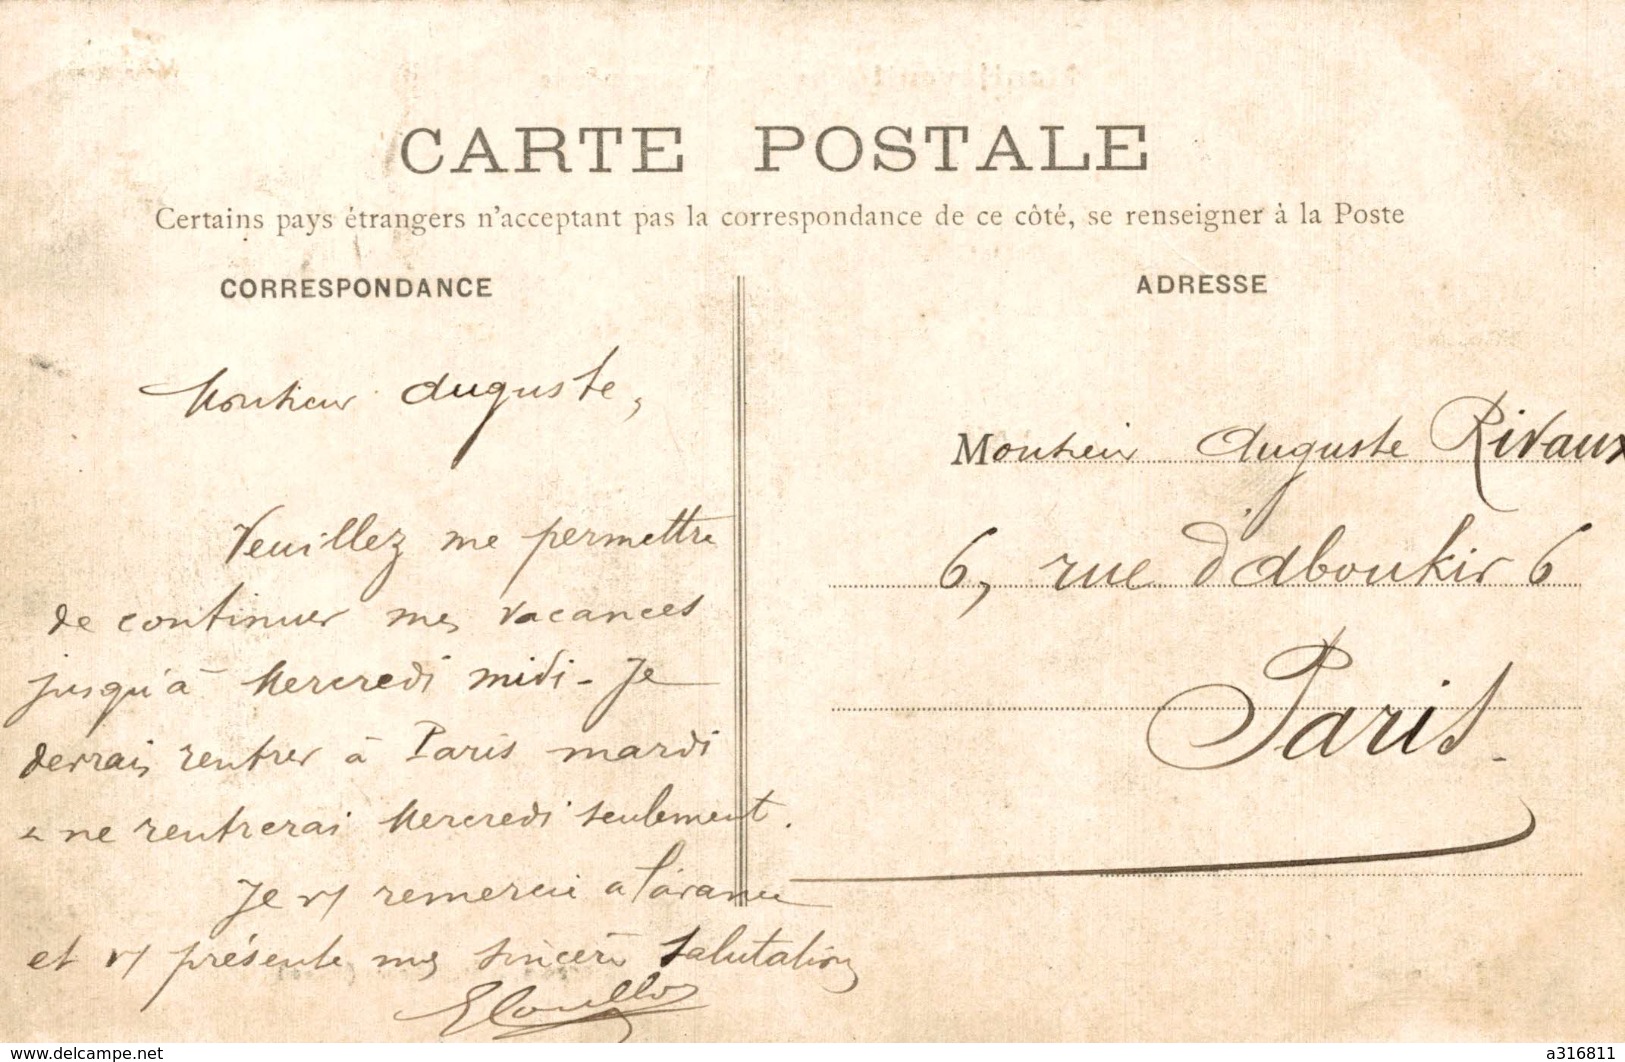 CARTE POSTALE
Certains pays étrangers n'acceptant pas la correspondance de ce côté, se renseigner à la Poste
CORRESPONDANCE
Monsieur Auguste,
Veuillez me permettre
de continuer mes vacances
jusqu'à Mercredi midi - Je
devrais rentrer à Paris mardi
& ne rentrerai Mercredi seulement.
Je vs remercie a l'avance
et vs présente mes sincères salutations
ADRESSE
Monsieur Auguste Rivaux
6, rue d'Aboukir 6
Paris.
www.delcampe.net
a316811